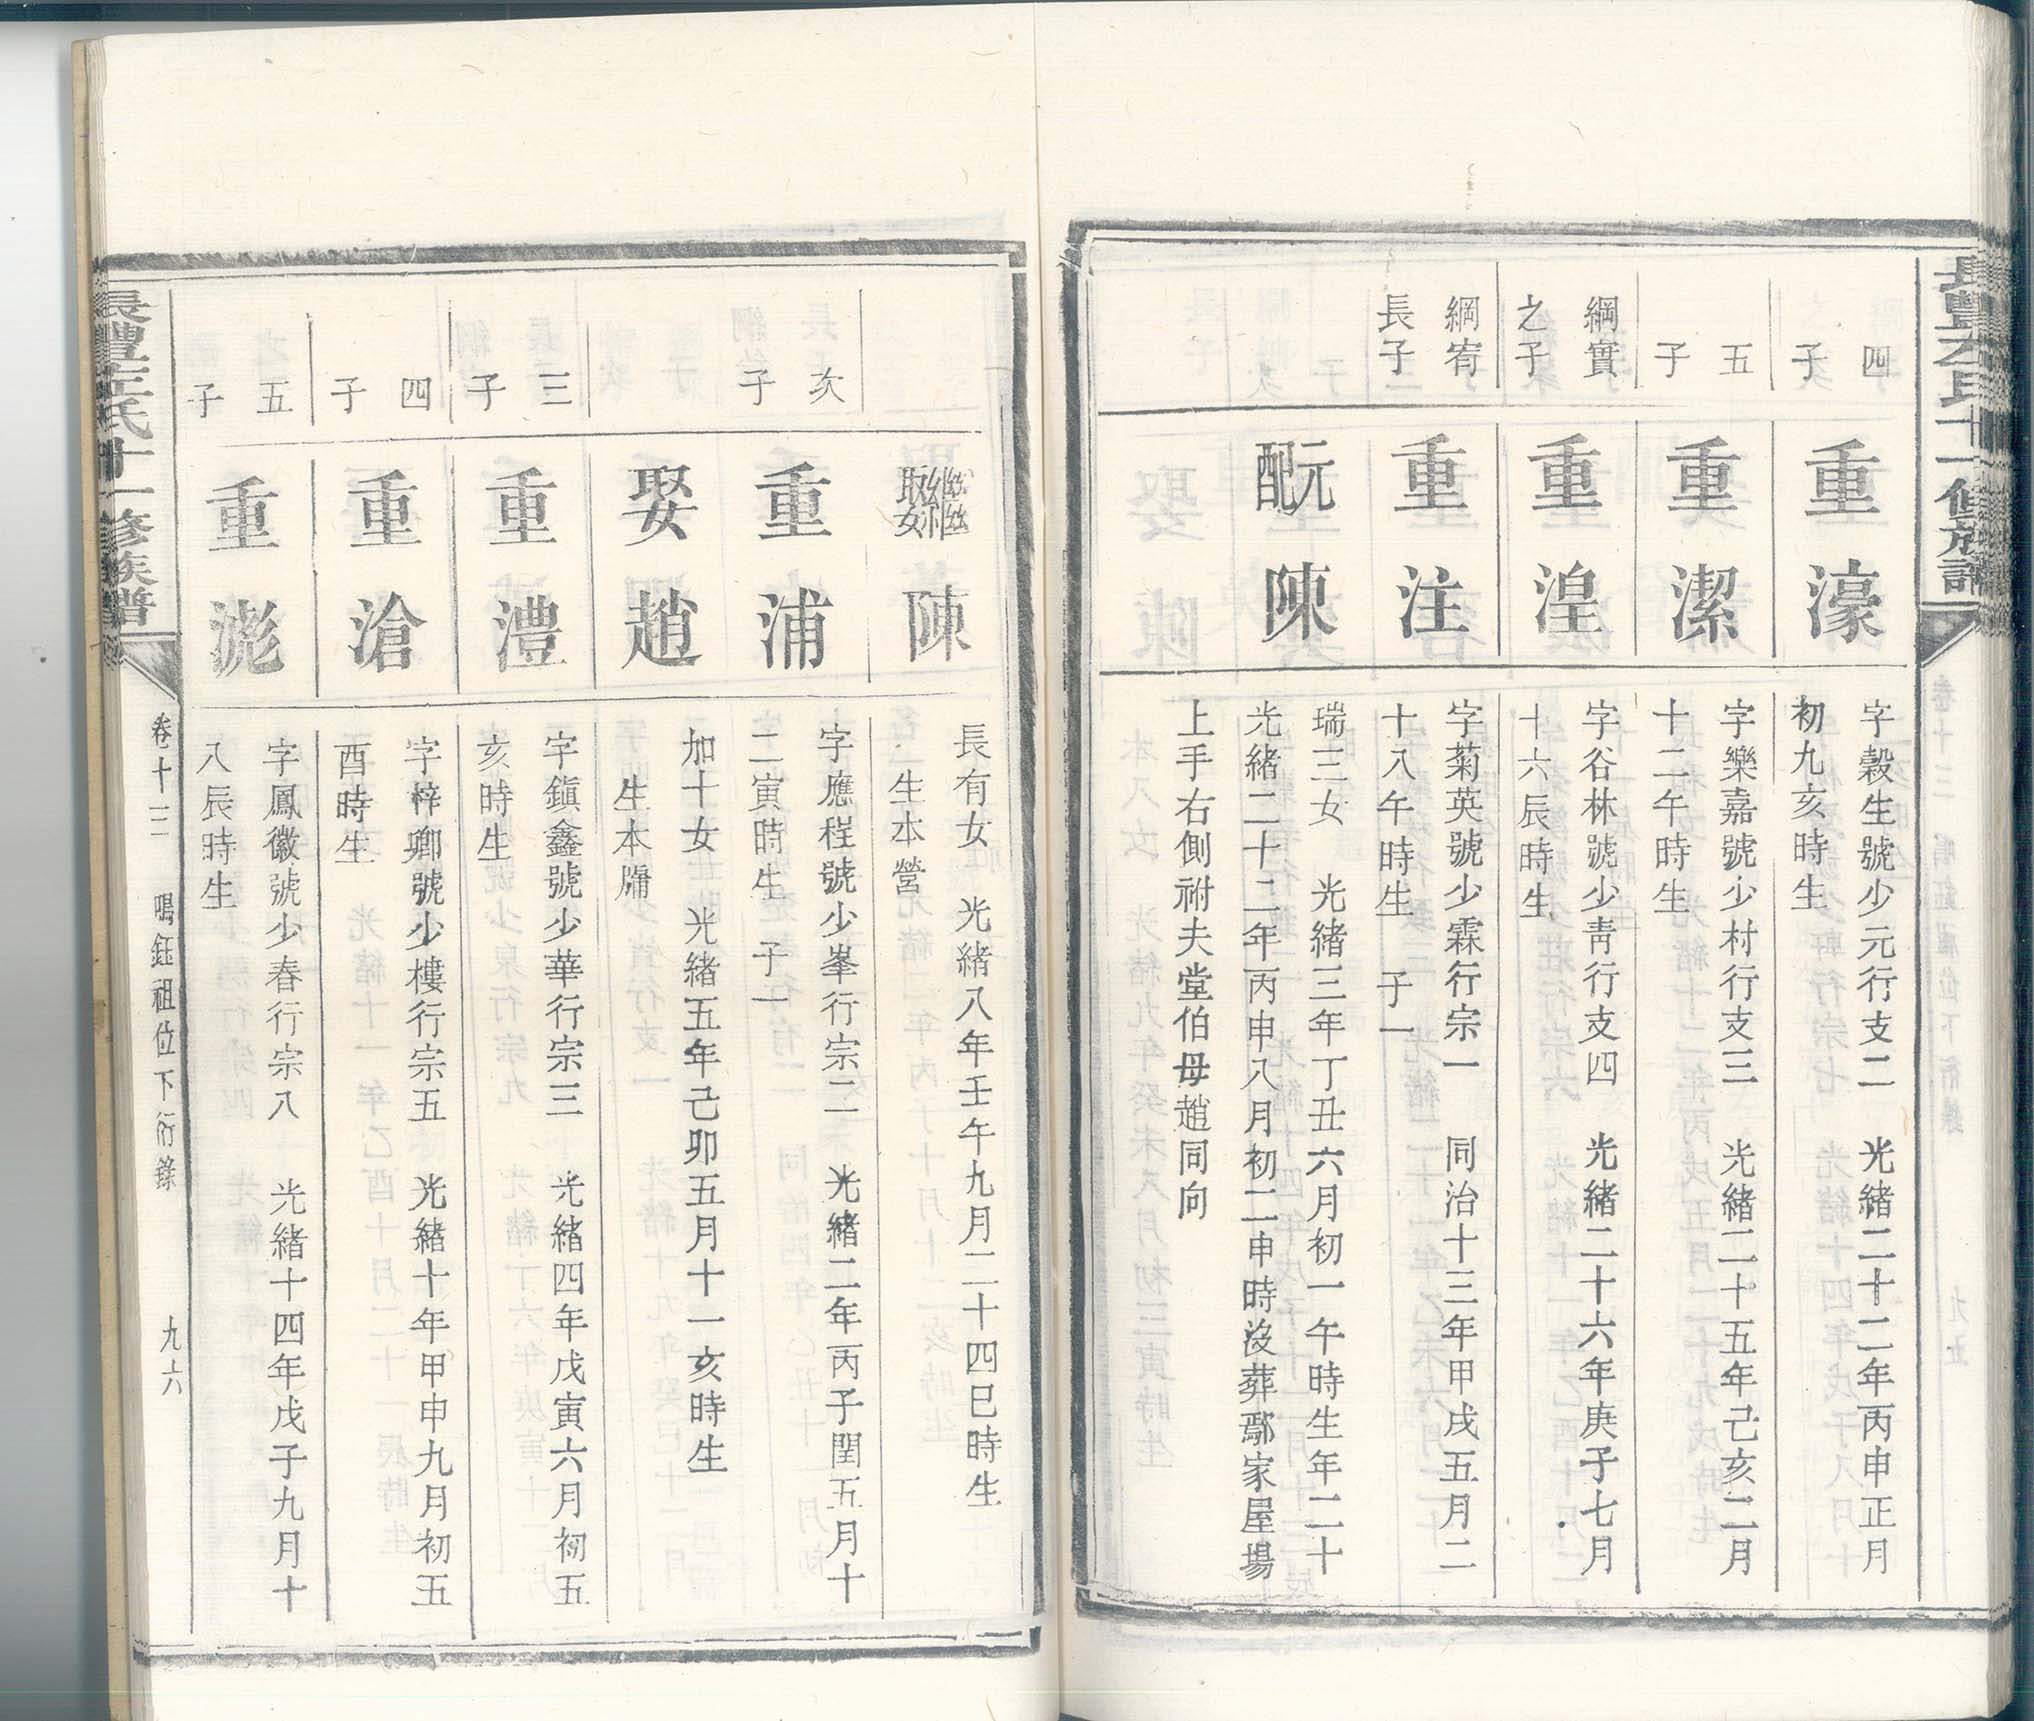 四
子
重濠
字穀生號少元行支二　光緒二十二年丙申正月
初九亥時生
五
子
重潔
字樂嘉號少村行支三　光緒二十五年己亥二月
十二午時生
綱實
之子
重湟
字谷林號少靑行支四　光緒二十六年庚子七月
十六辰時生
綱宥
長子
重注
字菊英號少霖行宗一　同治十三年甲戌五月二
十八午時生　子一
元配陳
瑞三女　光緒三年丁丑六月初一午時生年二十
光緒二十二年丙申八月初二申時沒葬鄢家屋場
上手右側祔夫堂伯母趙同向
繼娶陳
長有女　光緒八年壬午九月二十四巳時生
生本營
次
子
重浦
字應程號少峯行宗二　光緒二年丙子閏五月十
二寅時生　子一
娶趙
加十女　光緒五年己卯五月十一亥時生
生本牗
三
子
重澧
字鎭鑫號少華行宗三　光緒四年戊寅六月初五
亥時生
四
子
重滄
字梓卿號少樓行宗五　光緒十年甲申九月初五
酉時生
五
子
重滮
字鳳徽號少春行宗八　光緒十四年戊子九月十
八辰時生
卷十三　鳴鈺祖位下衍錄　九六